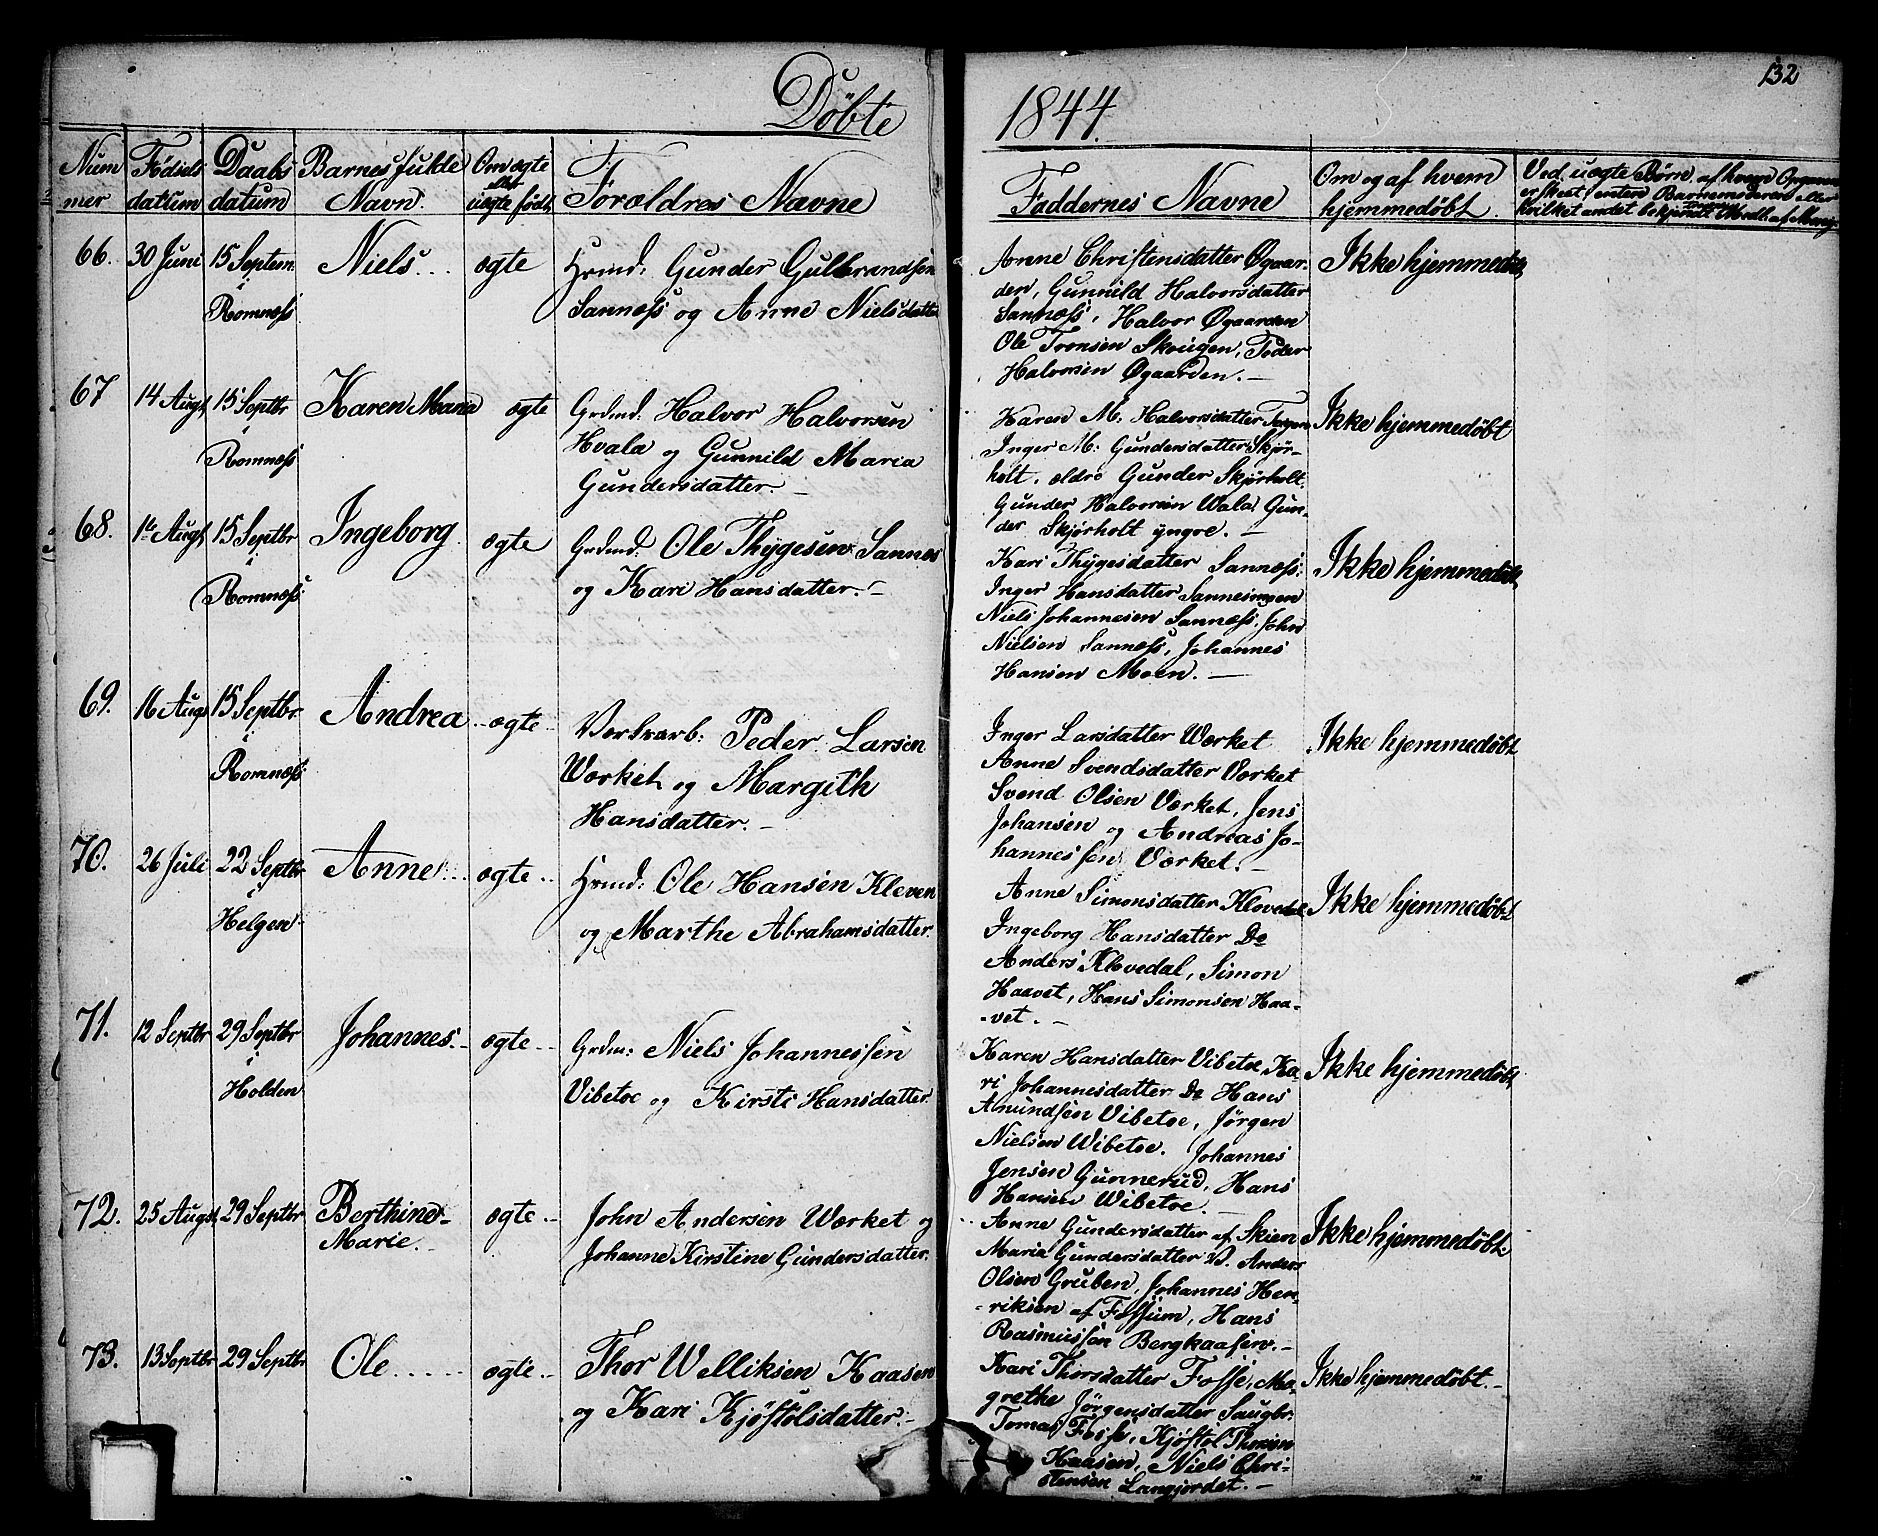 132
Döbte
1844.
Num
mer
Födsels
datum
Daabs
datum
Barnes fulde
Navn.
Om ægte
eller
uægte födt
Forældres Navne
Faddernes Navne
Om og af hvem
hjemmedøbt.
Ved uægte Børn af hvem Opgaven
er skeet, enten Barnemoderen eller
hvilket andet bekjendt
66. 30 Juni 15 Septem. Niels... ægte Hrmd: Gunder Gulbrandsen
i
Romnæss Sannæss og Anne Nielsdatter
Anne Christensdatter Øgaar-
den, Gunnild Halvorsdatter
Sannæss, Halvor Øgaarden
Ole Tronsen Skougen, Peder
Halvorsen Øgaarden. —
Ikke hjemmedøbt
67 14 Augt 15 Septbr Karen Maria ægte Grdmd. Halvor Halvorsen
i
Romnæss
Hvala og Gunnild Maria
Gundersdatter. —
Karen M: Halvorsdatter
Inger M: Gundersdatter Skjør-
holt. ældre Gunder Skjørholt.
Gunder Halvorsen Wala, Gun-
der Skjørholt yngre. —
Ikke hjemmedøbt
68. 1te Augt 15 Septbr Ingeborg ægte Grdmd. Ole Thygesen Sannes
i
Romnæss
og Kari Hansdatter. —
Kari Thygesdatter Sannæss.
Inger Hansdatter Sannesmoen
Niels Johannesen Sannæss, John
Nielsen Sannæss, Johannes
Hansen Moen. —
Ikke hjemmedøbt
69. 16 Augt 15 Septbr. Andrea ægte Værksarb: Peder Larsen
i
Romnæss
Værket og Margith
Hansdatter. —
Inger Larsdatter Værket
Anne Svendsdatter Værket
Svend Olsen Værket, Jens
Johansen og Andreas Jo-
hannessen Værket. —
Ikke hjemmedøbt
70. 26 Juli 22 Septbr Anne... ægte Hrmd: Ole Hansen Kleven
i
Helgen
og Marthe Abrahamsdatter.
Anne Simonsdatter Klovedal
Ingeborg Hansdatter Do
Anders Klevedal, Simon
Haavet, Hans Simonsen Haa-
-vet. —
Ikke hjemmedøbt
71. 12 Septbr 29 Septbr Johannes. ægte Grdm: Niels Johannessen
i
Holden
Vibetoe og Kirsti Hansdatter
Karen Hansdatter Vibetoe, Ka-
ri Johannesdatter Do Hans
Amundsen Vibetoe, Jørgen
Nielsen Wibetoe. Johannes
Jensen Gunnerud, Hans
Hansen Wibetoe. —
Ikke hjemmedøbt
72. 25 Augst 29 Septbr Berthine ægte John Andersen Værket og
Marie. Johanne Kirstine Gundersdatter.
Anne Gundersdatter af Skien
Maria Gundersdatter V. Anders
Olsen Gruben, Johannes Hen-
-riksen af Fossum, Hans
Rasmussen Bergkaasen. —
Ikke hjemmedøbt.
73. 13 Septbr 29 Septbr Ole..... ægte Thor Welliksen Kaasen
og Kari Kjøstolsdatter. —
Kari Thorsdatter Fosse, Ma-
grethe Jörgensdatter Saugbr:
Tomas Fosse, Kjøstol Thorsen
Kaasen, Niels Chri-
stensen Langjordet. —
Ikke hjemmedøbt. —